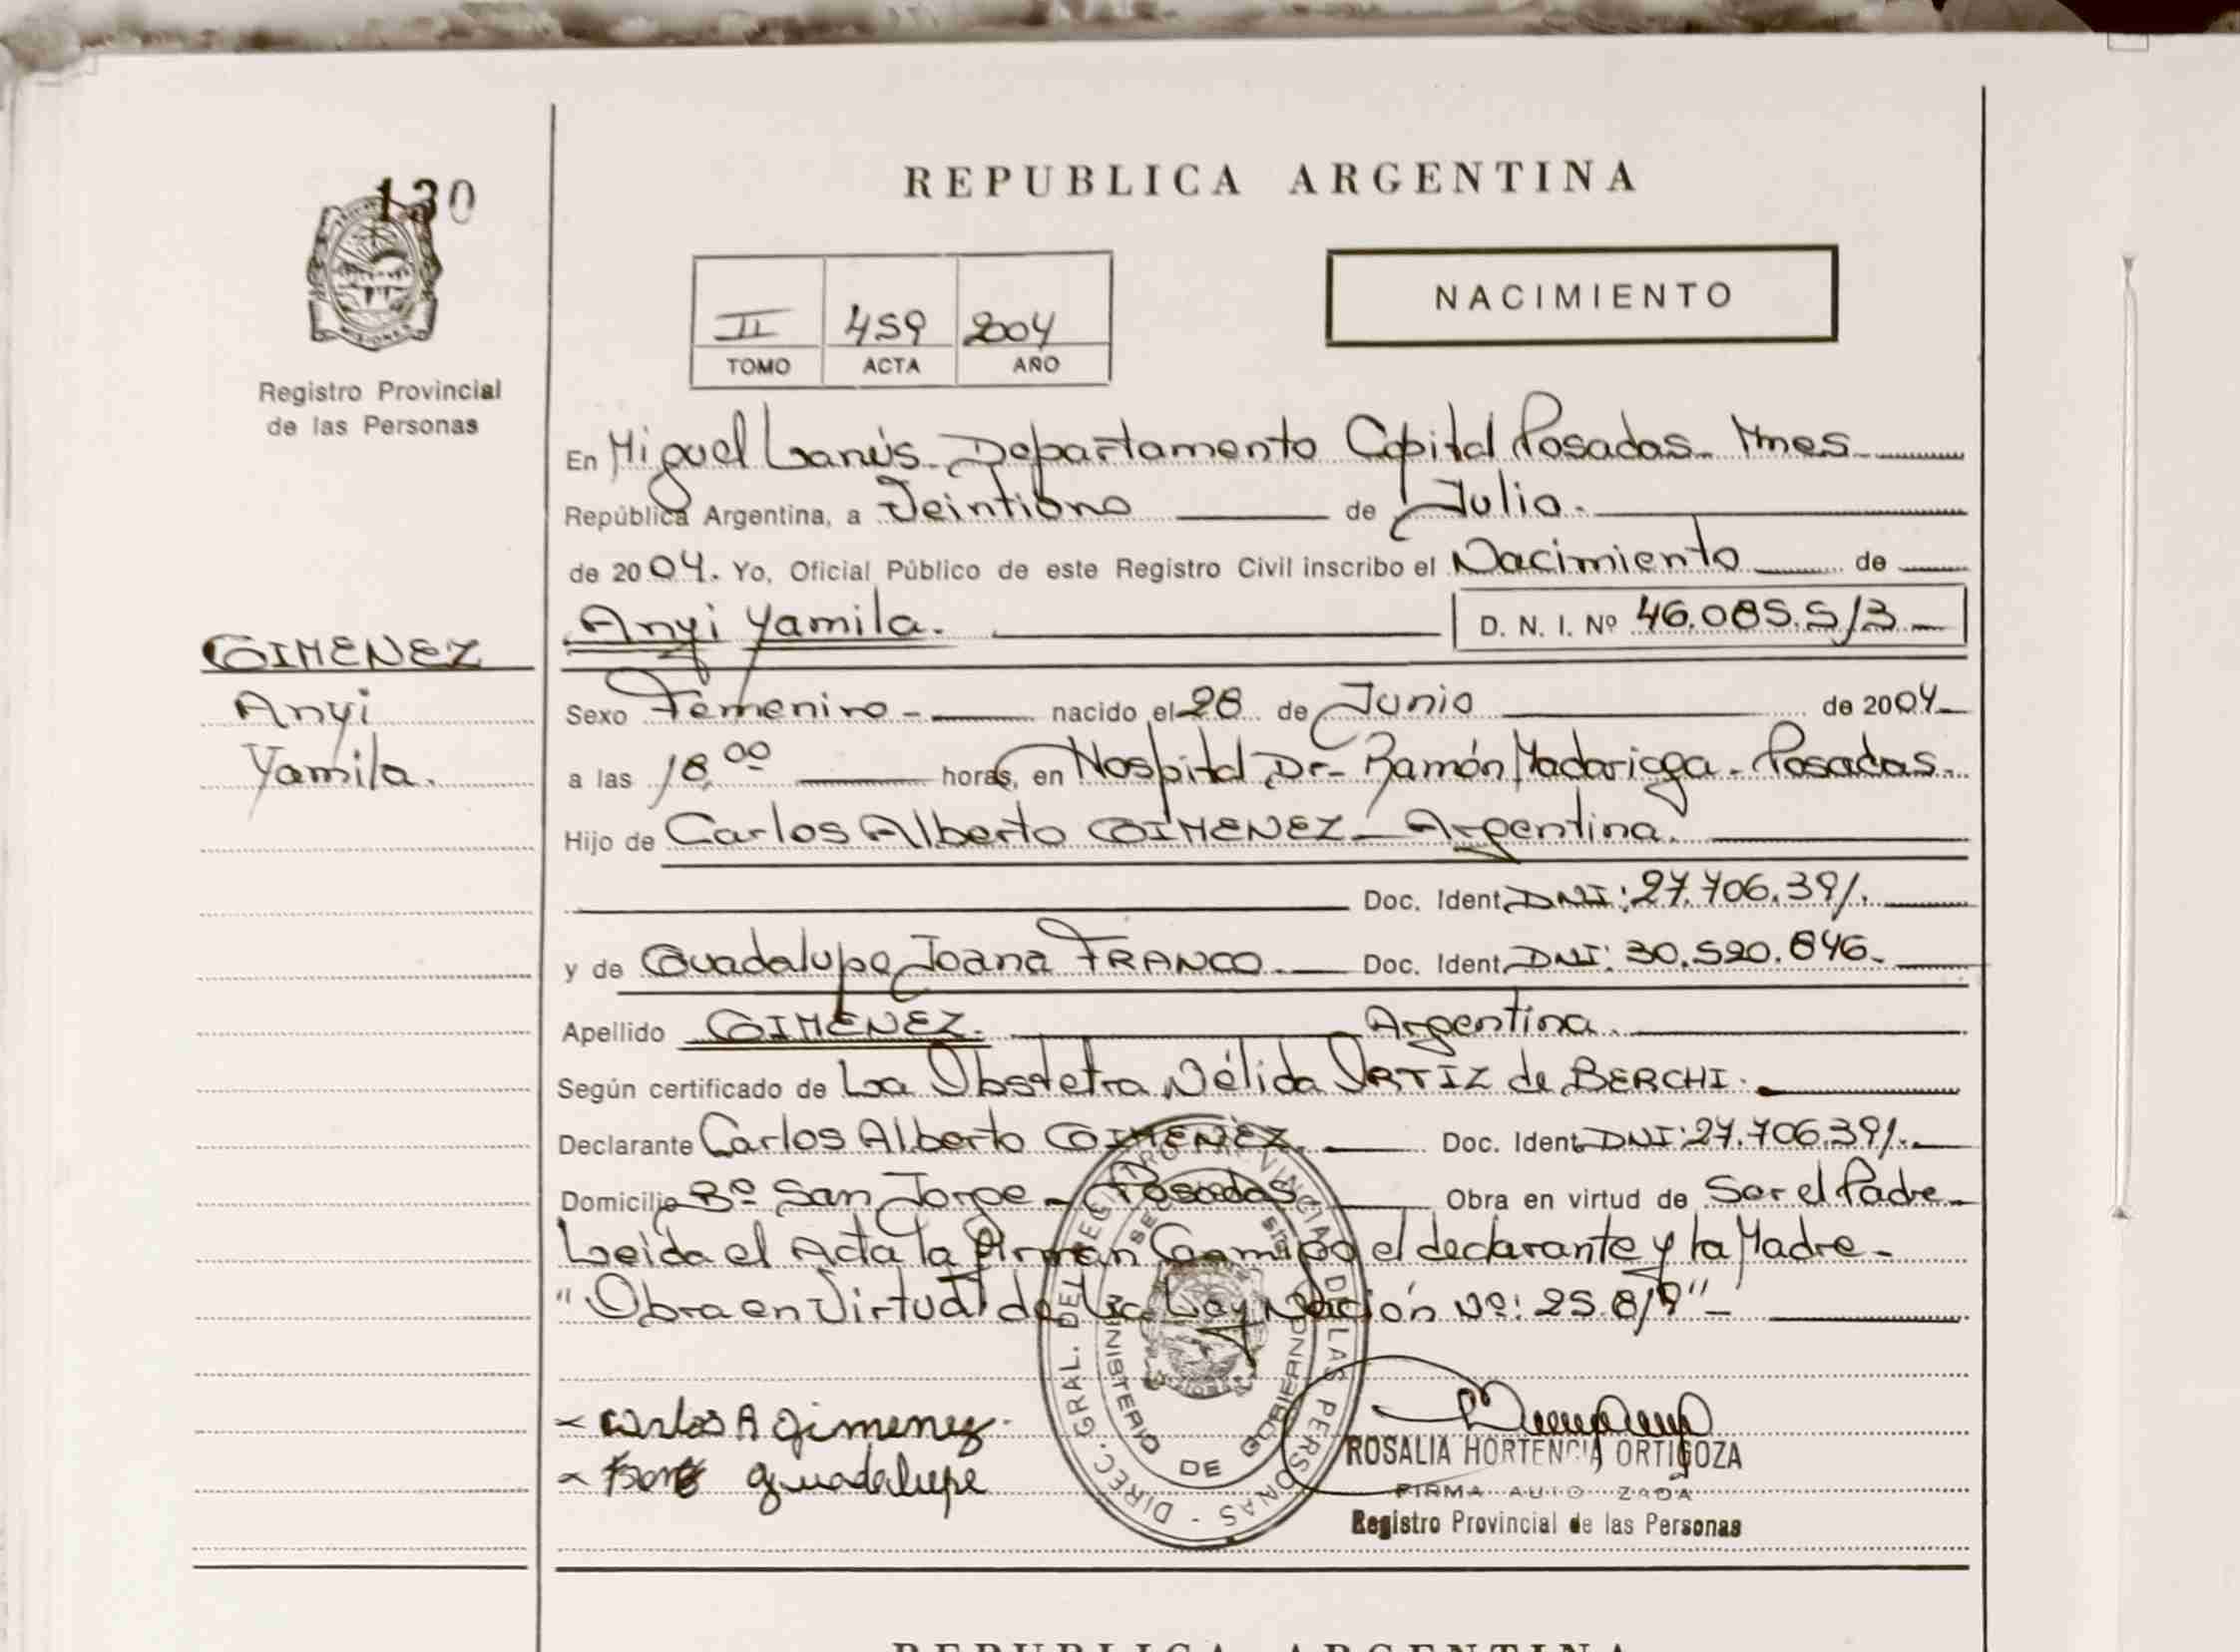 130
MISIONES
Registro Provincial
de las Personas
GIMENEZ
Anyi
Yamila.
REPUBLICA ARGENTINA
II 459 2004
TOMO ACTA AÑO
NACIMIENTO
En Miguel Lanús. Departamento Capital Posadas. Mnes
República Argentina, a Veintiuno de Julio.
de 2004. Yo, Oficial Público de este Registro Civil inscribo el Nacimiento de
Anyi Yamila. D. N. I. Nº 46.085.513
Sexo Femenino nacido el 28 de Junio de 2004
a las 18,00 horas, en Hospital Dr. Ramón Madariaga - Posadas.
Hijo de Carlos Alberto GIMENEZ - Argentina.
Doc. Ident. DNI: 27.706.391.
y de Guadalupe Joana FRANCO. Doc. Ident. DNI: 30.520.846.
Apellido GIMENEZ. Argentina.
Según certificado de La Obstetra Nélida ORTIZ de BERCHI.
Declarante Carlos Alberto GIMENEZ. Doc. Ident. DNI: 27.706.391.
Domicilio Bº San Jorge - Posadas. Obra en virtud de Ser el Padre
Leida el Acta la firman Conmigo el declarante y la Madre
"Obra en Virtud de la Ley Nación Nº: 25.819"
Carlos A Gimenez
guadalupe
DIREC. GRAL. DEL REGISTRO PROVINCIAL DE LAS PERSONAS
MINISTERIO DE GOBIERNO
ROSALIA HORTENCIA ORTIGOZA
FIRMA AUTORIZADA
Registro Provincial de las Personas
REPUBLICA ARGENTINA